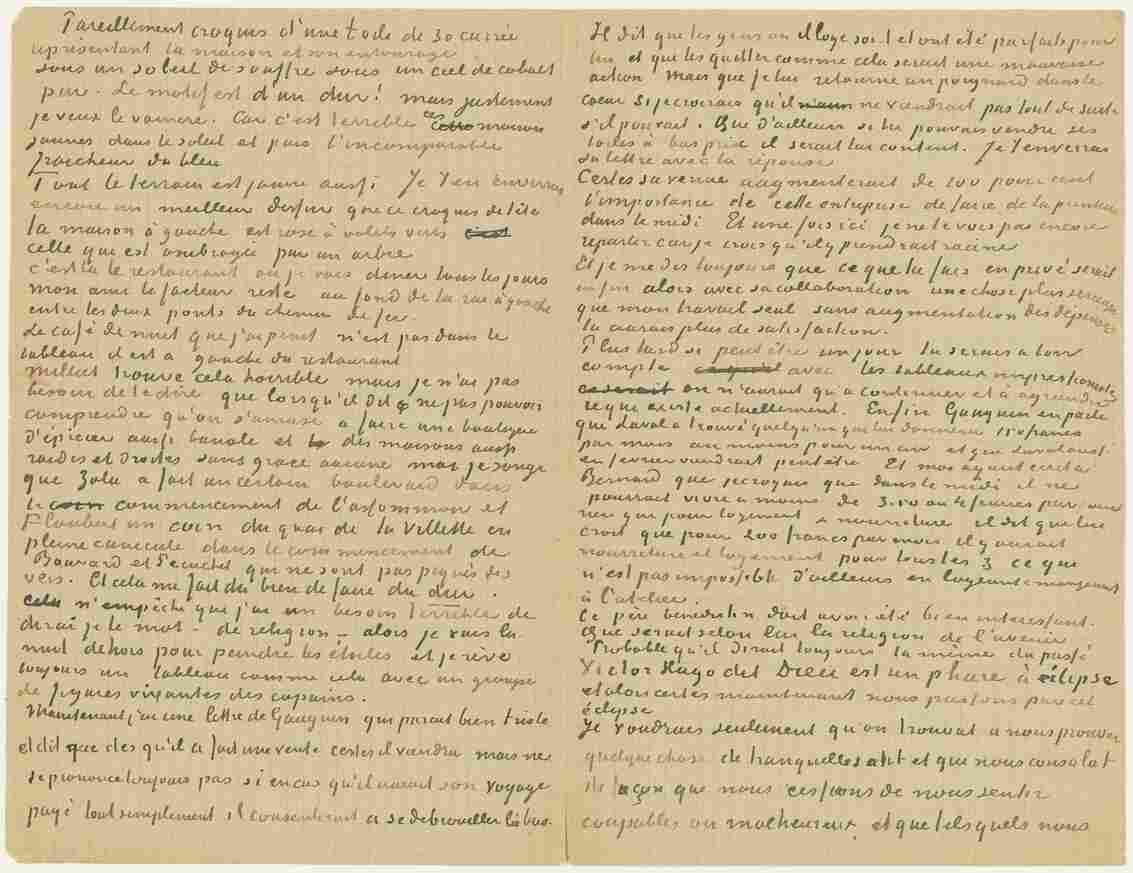 Pareillement croquis d'une toile de 30 carrée
représentant la maison et son entourage
sous un soleil de souffre sous un ciel de cobalt
pur. Le motif est d'un dur! mais justement
je veux le vaincre. Car c'est terrible ces maisons
jaunes dans le soleil et puis l'incomparable
fraicheur du bleu
Tout le terrain est jaune aussi Je t'en enverrai
encore un meilleur dessin que ce croquis de tête
la maison à gauche est rose à volets verts c'est
celle qui est ombragée par un arbre
c'est là le restaurant où je vais diner tous les jours
mon ami le facteur reste au fond de la rue à gauche
entre les deux ponts du chemin de fer.
Le café de nuit que j'ai peint n'est pas dans le
tableau il est à gauche du restaurant
Milliet trouve cela horrible mais je n'ai pas
besoin de te dire que lorsqu'il dit ne pas pouvoir
comprendre qu'on s'amuse à faire une boutique
d'épicier aussi banale et des maisons aussi
raides et droites sans grace aucune mais je songe
que Zola a fait un certain boulevard dans
le coin commencement de l'assommoir et
Flaubert un coin du quai de la Villette en
pleine canicule dans le commencement de
Bouvard et Pecuchet qui ne sont pas piqués des
vers. Et cela me fait du bien de faire du dur.
cela n'empêche que j'ai un besoin terrible de
dirai je le mot – de religion – alors je vais la
nuit dehors pour peindre les étoiles et je rêve
toujours un tableau comme cela avec un groupe
de figures vivantes des copains.
Maintenant j'ai une lettre de Gauguin qui parait bien triste
et dit que dès qu'il a fait une vente certes il viendra mais ne
se prononce toujours pas si en cas qu'il aurait son voyage
payé tout simplement il consentirait à se débrouiller là bas.
Il dit que les gens où il loge sont et ont été parfaits pour
lui et que les quitter comme cela serait une mauvaise
action Mais que je lui retourne un poignard dans le
coeur si je croirais qu'il ne viendrait pas tout de suite
s'il pouvait. Que d'ailleurs si tu pouvais vendre ses
toiles à bas prix il serait lui content. Je t'enverrai
sa lettre avec la réponse
Certes sa venue augmenterait de 100 pour cent
l'importance de cette entreprise de faire de la peinture
dans le midi Et une fois ici je ne le vois pas encore
repartir car je crois qu'il y prendrait racine
Et je me dis toujours que ce que tu fais en privé serait
enfin alors avec sa collaboration une chose plus sérieuse
que mon travail seul sans augmentation des dépenses
tu aurais plus de satisfaction.
Plus tard si peut être un jour tu serais à ton
compte avec les tableaux impressionistes
on n'aurait qu'à continuer et à agrandir
ce qui existe actuellement. Enfin Gauguin en parle
que Laval a trouvé quelqu'un qui lui donnera 150 francs
par mois au moins pour un an et que Laval aussi
en fevrier viendrait peutêtre Et moi ayant ecrit à
Bernard que je croyais que dans le midi il ne
pourrait vivre à moins de 3.50 ou 4 francs par jour
rien que pour logement & nourriture il dit que lui
croit que pour 200 francs par mois il y aurait
nourriture et logement pour tous les 3 ce qui
n'est pas impossible d'ailleurs en logeant & mangeant
à l'atelier
Ce père bénédictin doit avoir été bien interessant.
Que serait selon lui la religion de l'avenir
Probable qu'il dirait toujours la même du passé
Victor Hugo dit Dieu est un phare à éclipse
et alors certes maintenant nous passons par cet
éclipse
Je voudrais seulement qu'on trouvat à nous prouver
quelque chose de tranquillisant et qui nous consolat
de façon que nous cessions de nous sentir
coupables ou malheureux et que tels quels nous